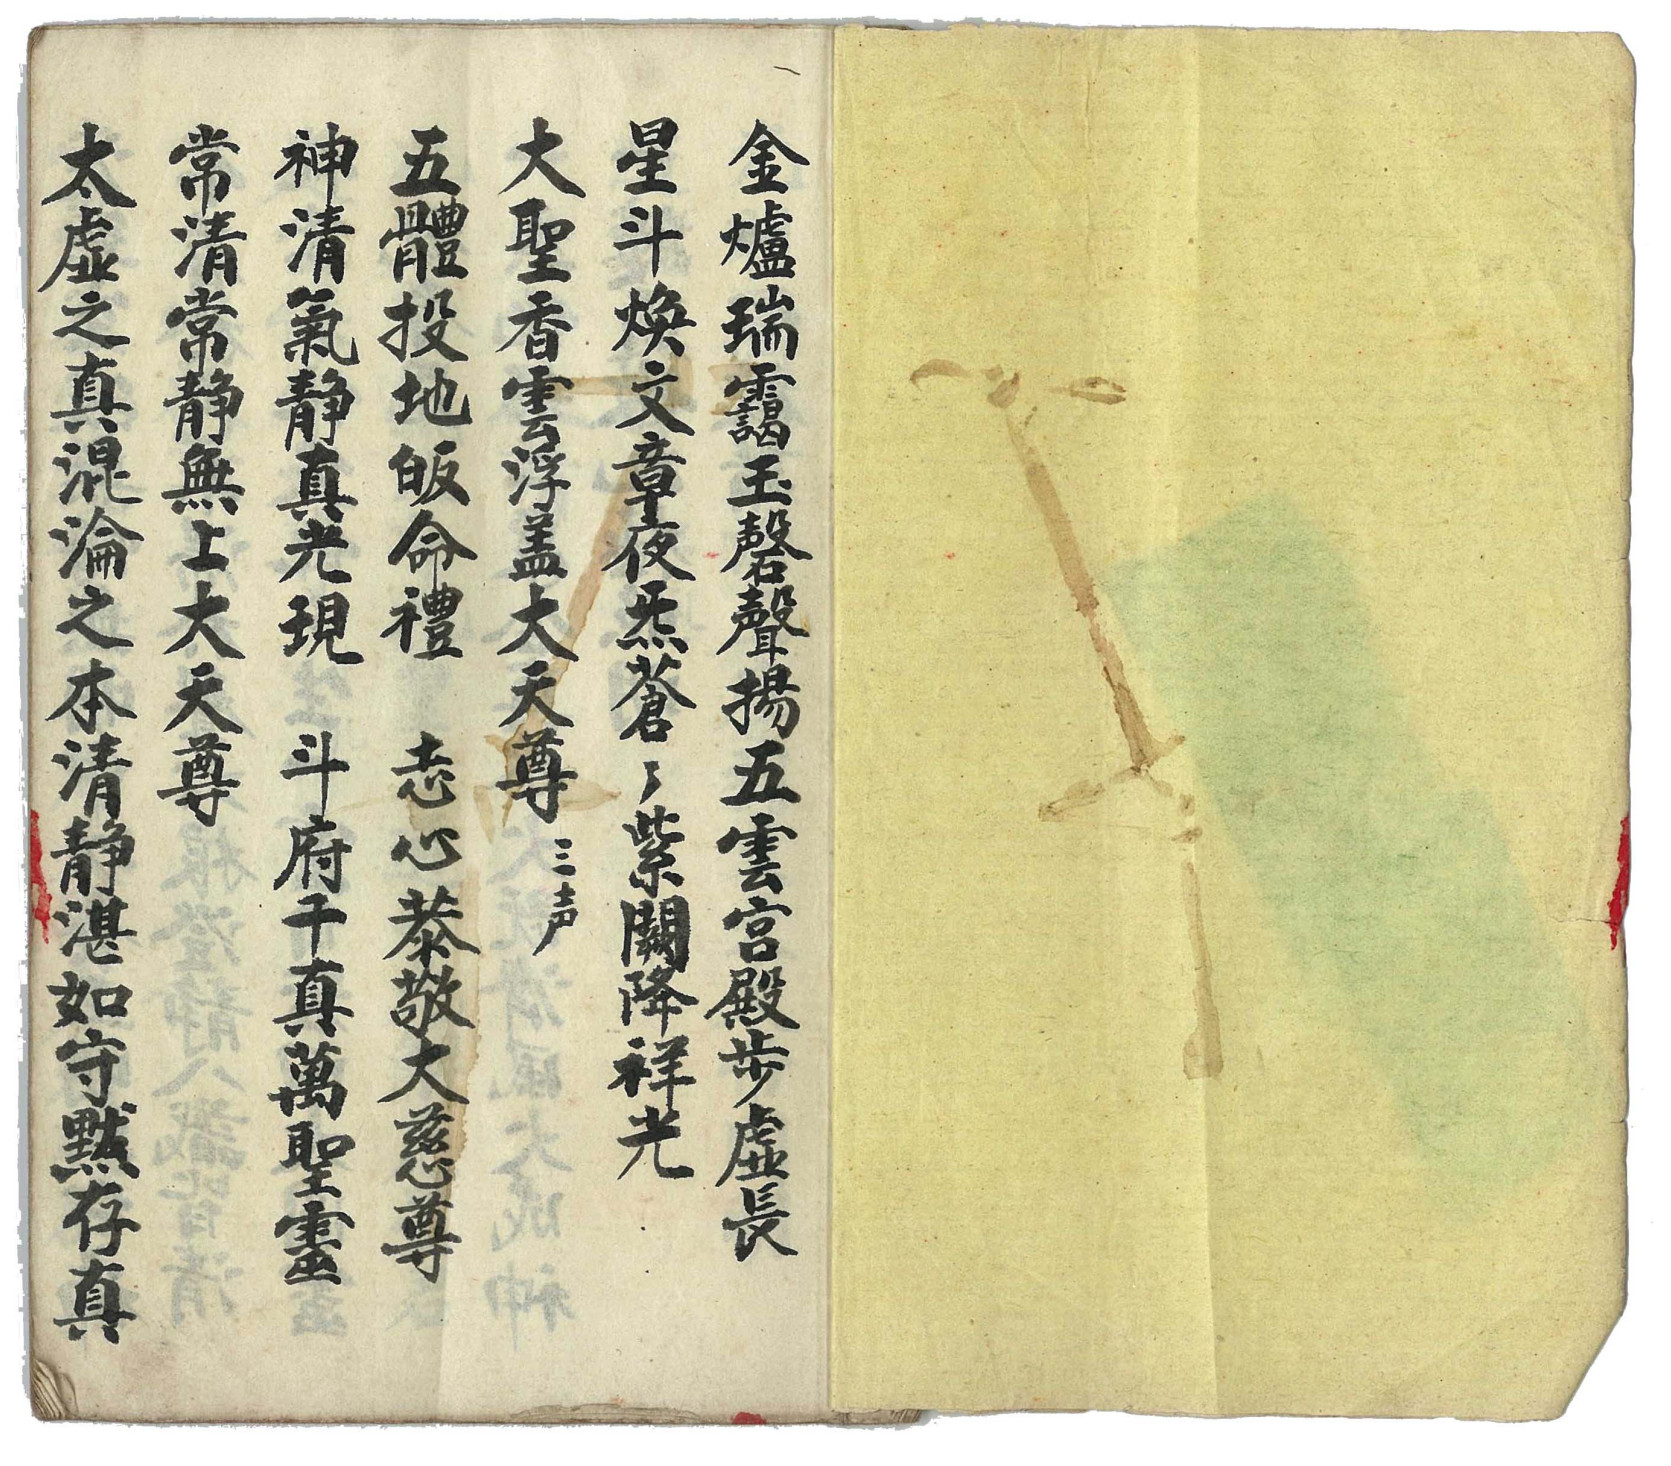 金爐瑞靄玉磬聲揚五雲宮殿步虛長
星斗煥文章夜炁蒼々紫闕降祥光
大聖香雲浮盖大天尊 三声
五體投地皈命禮 志心恭敬大慈尊
神清氣静真光現 斗府千真萬聖靈
常清常静無上大天尊
太虛之真混淪之本清静湛如守黙存真